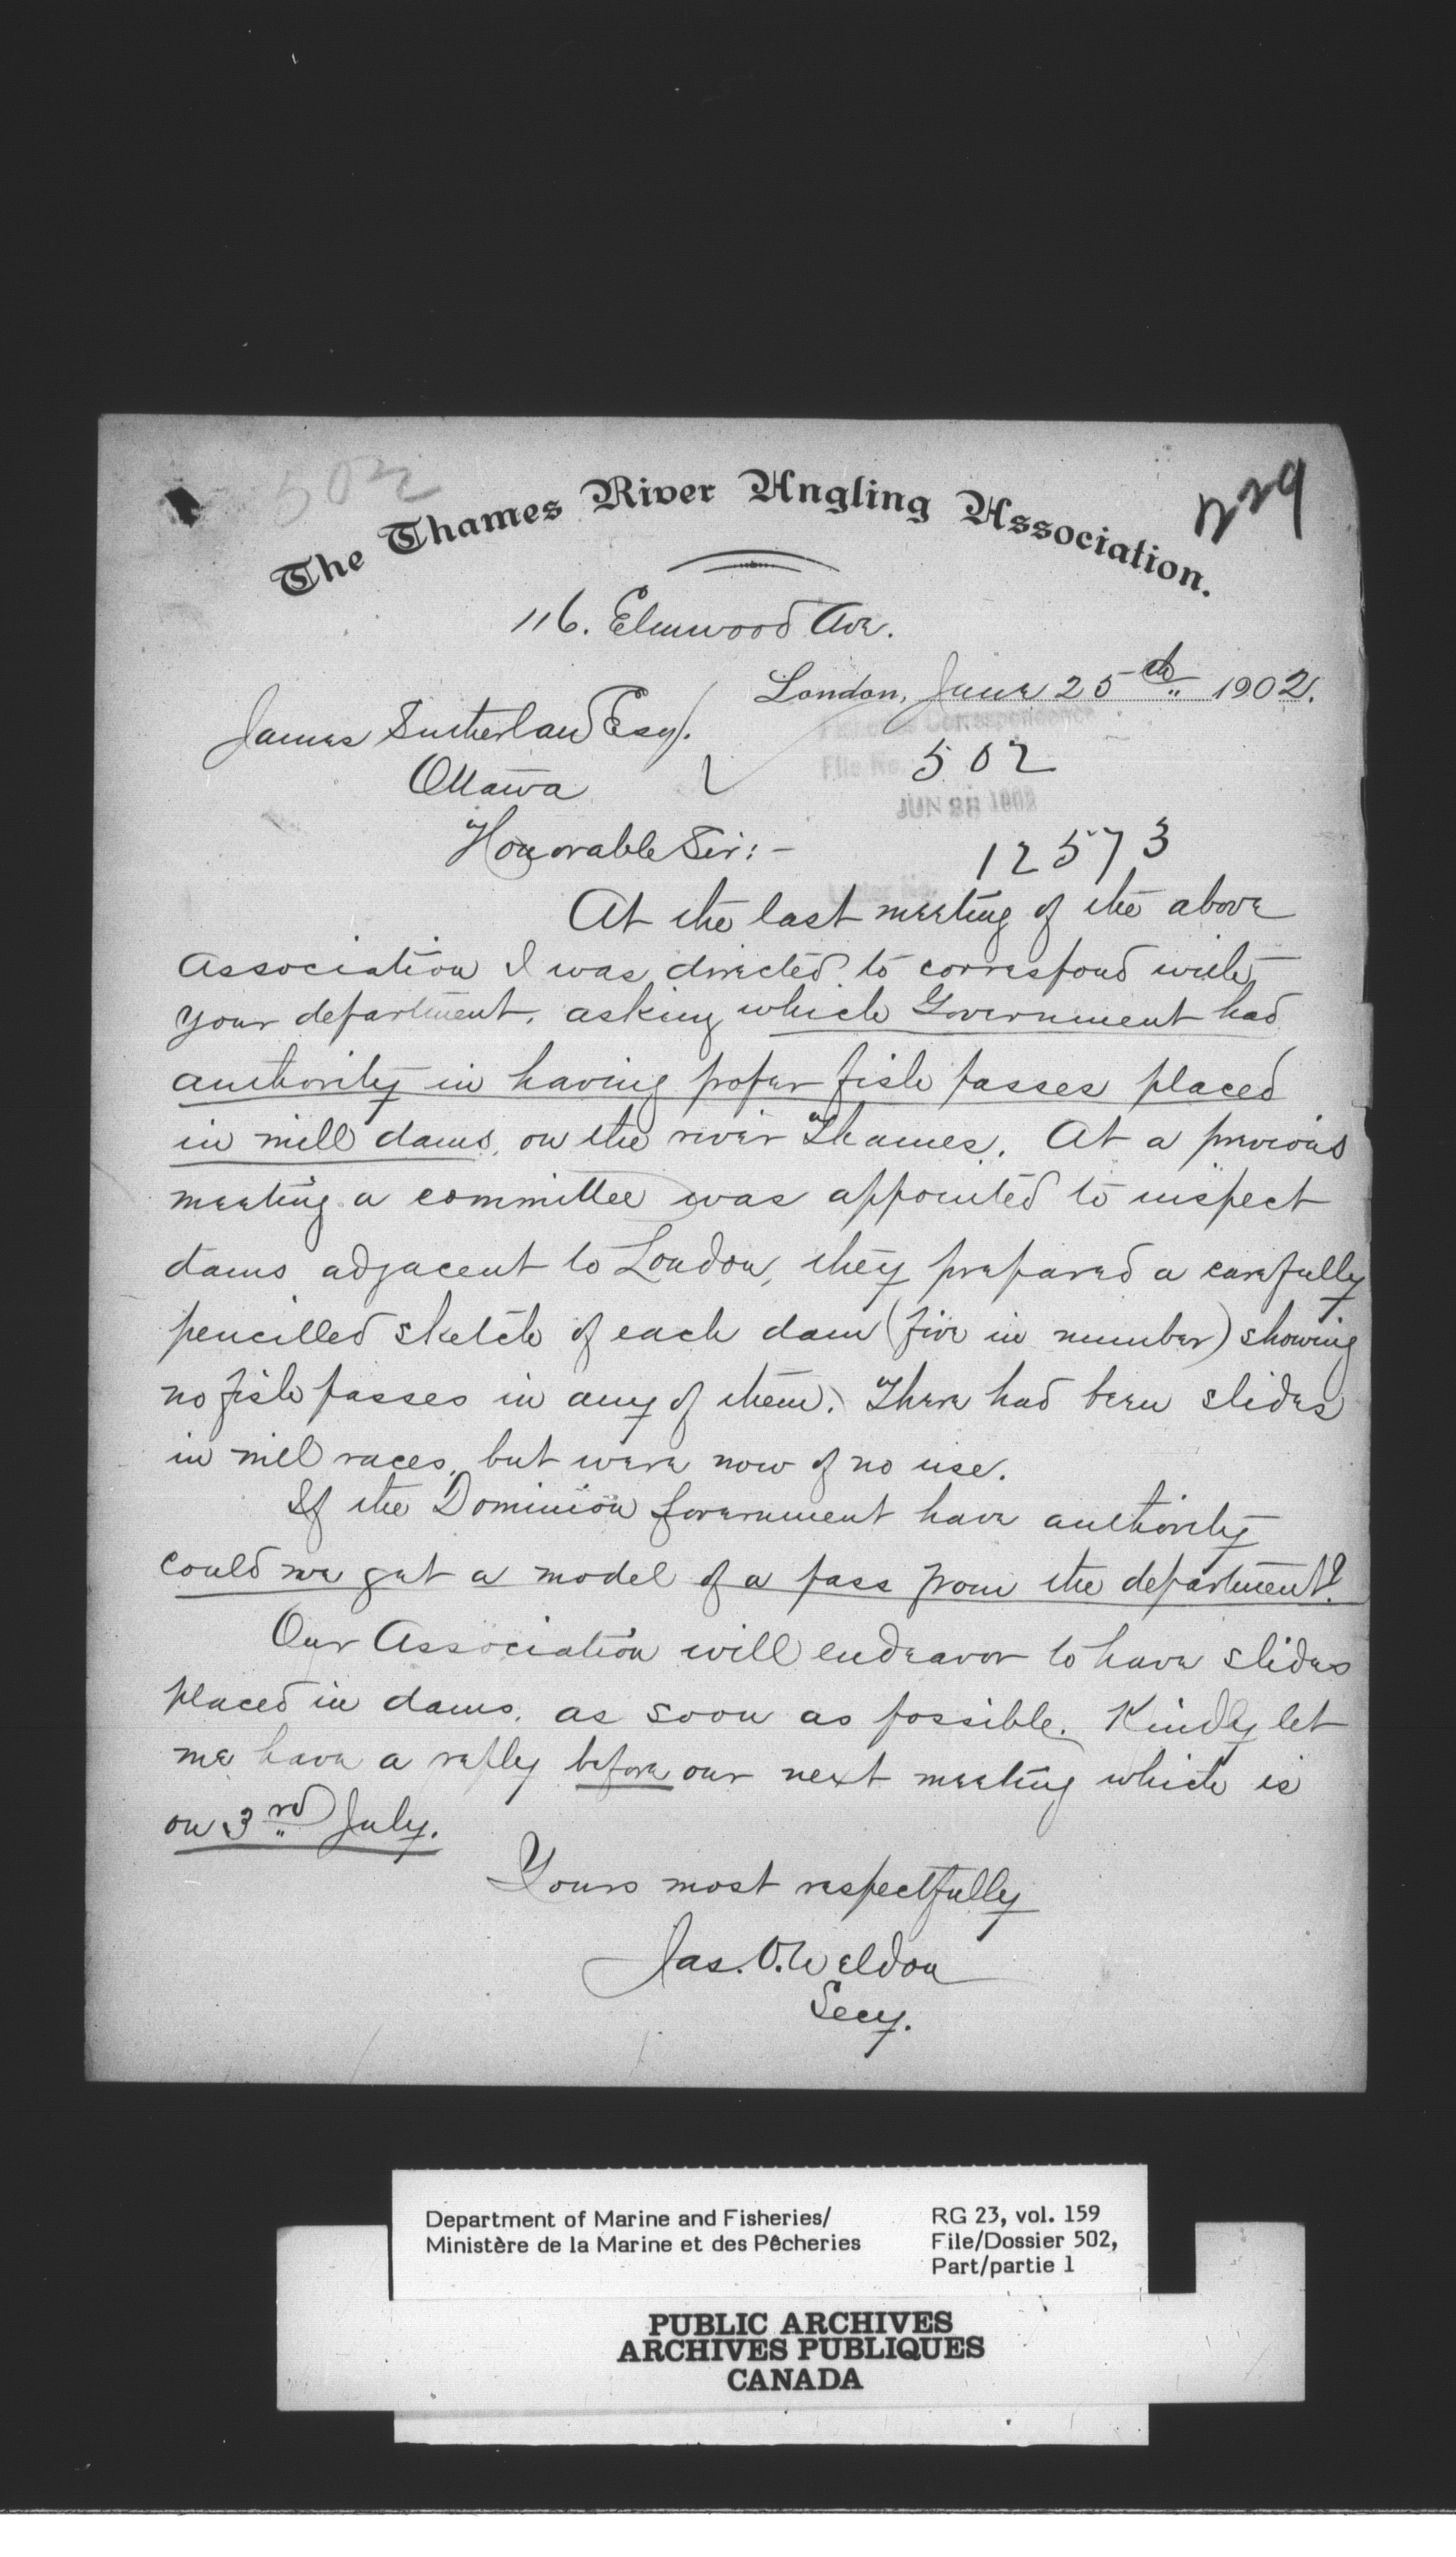 502
229
The Thames River Angling Association.
116. Elmwood Ave.
London, June 25th 1902.
James Sutherland Esq.
Fisheries Correspondence
File No. 502
Ottawa
JUN 28 1902
Honorable Sir:-
12573
Letter No.
At the last meeting of the above
Association I was directed to correspond with
your department, asking which Government had
authority in having proper fish passes placed
in mill dams, on the river Thames. At a previous
meeting a committee was appointed to inspect
dams adjacent to London, they prepared a carefully
pencilled sketch of each dam (five in number) showing
no fish passes in any of them. There had been slides
in mill races, but were now of no use.
If the Dominion Government have authority
could we get a model of a pass from the department?
Our Association will endeavor to have slides
placed in dams, as soon as possible. Kindly let
me have a reply before our next meeting which is
on 3rd July.
Yours most respectfully
Jas. O. Weldon
Secy.
Department of Marine and Fisheries/
Ministère de la Marine et des Pêcheries
RG 23, vol. 159
File/Dossier 502,
Part/partie 1
PUBLIC ARCHIVES
ARCHIVES PUBLIQUES
CANADA